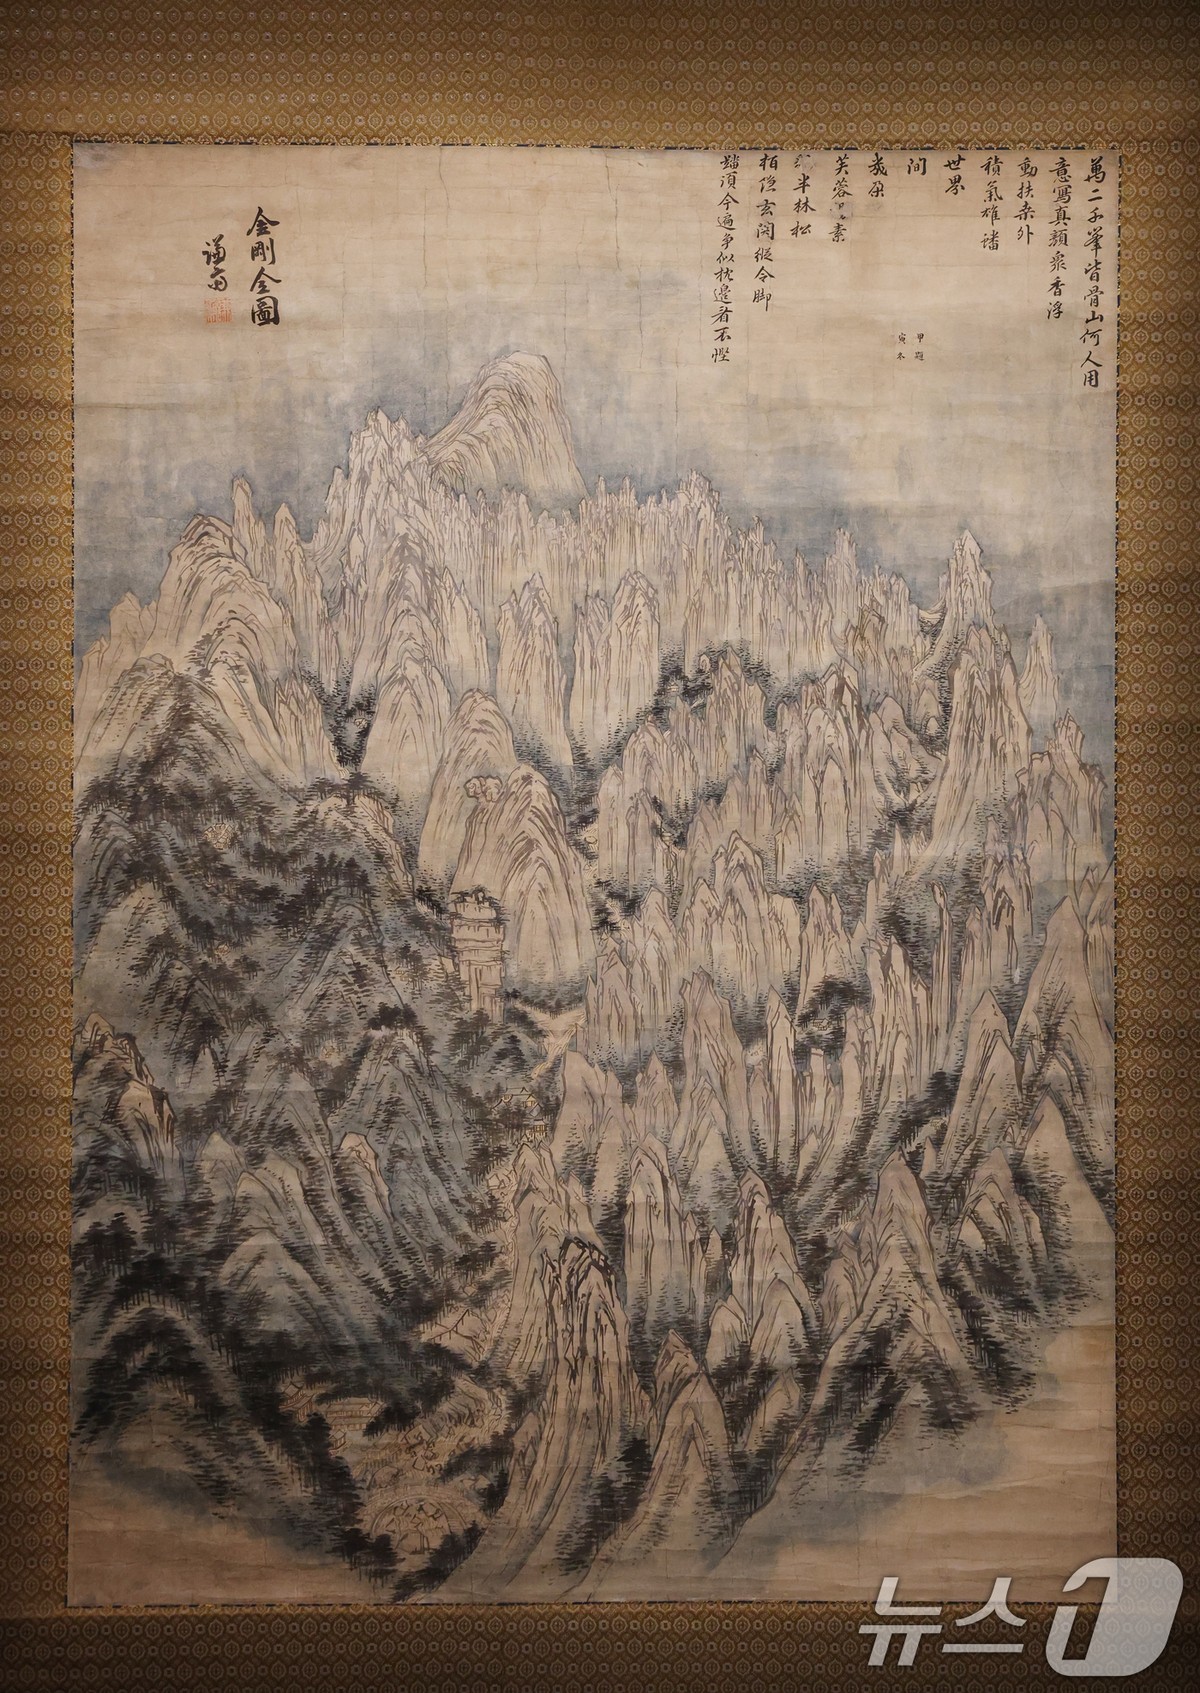 萬二千峯皆骨山何人用
意寫真顔衆香浮
動扶桒外
積氣雄蟠
世界
間
幾朶
芙蓉 素
半林松
栢隱玄関縱令脚
踏須今遍争似枕邊看不慳
甲
寅
冬
題
金剛全圖
謙斎
뉴스1